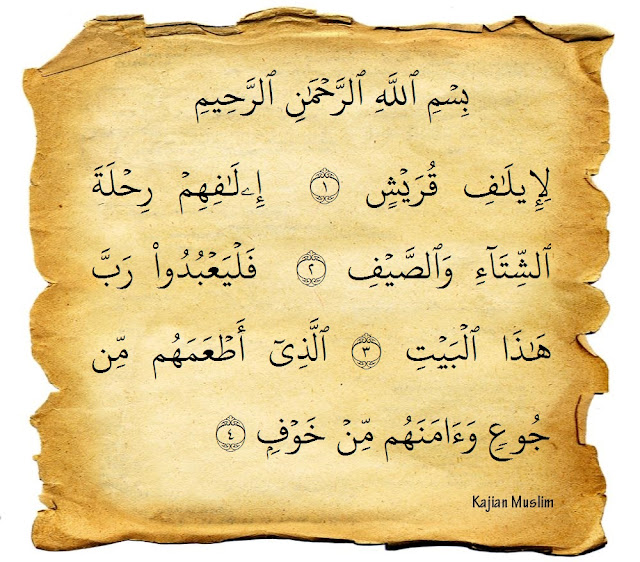 بِسۡمِ ٱللَّهِ ٱلرَّحۡمَٰنِ ٱلرَّحِيمِ
لِإِيلَٰفِ قُرَيۡشٍ ١ إِۦلَٰفِهِمۡ رِحۡلَةَ
ٱلشِّتَآءِ وَٱلصَّيۡفِ ٢ فَلۡيَعۡبُدُواْ رَبَّ
هَٰذَا ٱلۡبَيۡتِ ٣ ٱلَّذِيٓ أَطۡعَمَهُم مِّن
جُوعٖ وَءَامَنَهُم مِّنۡ خَوۡفٍ ٤
Kajian Muslim